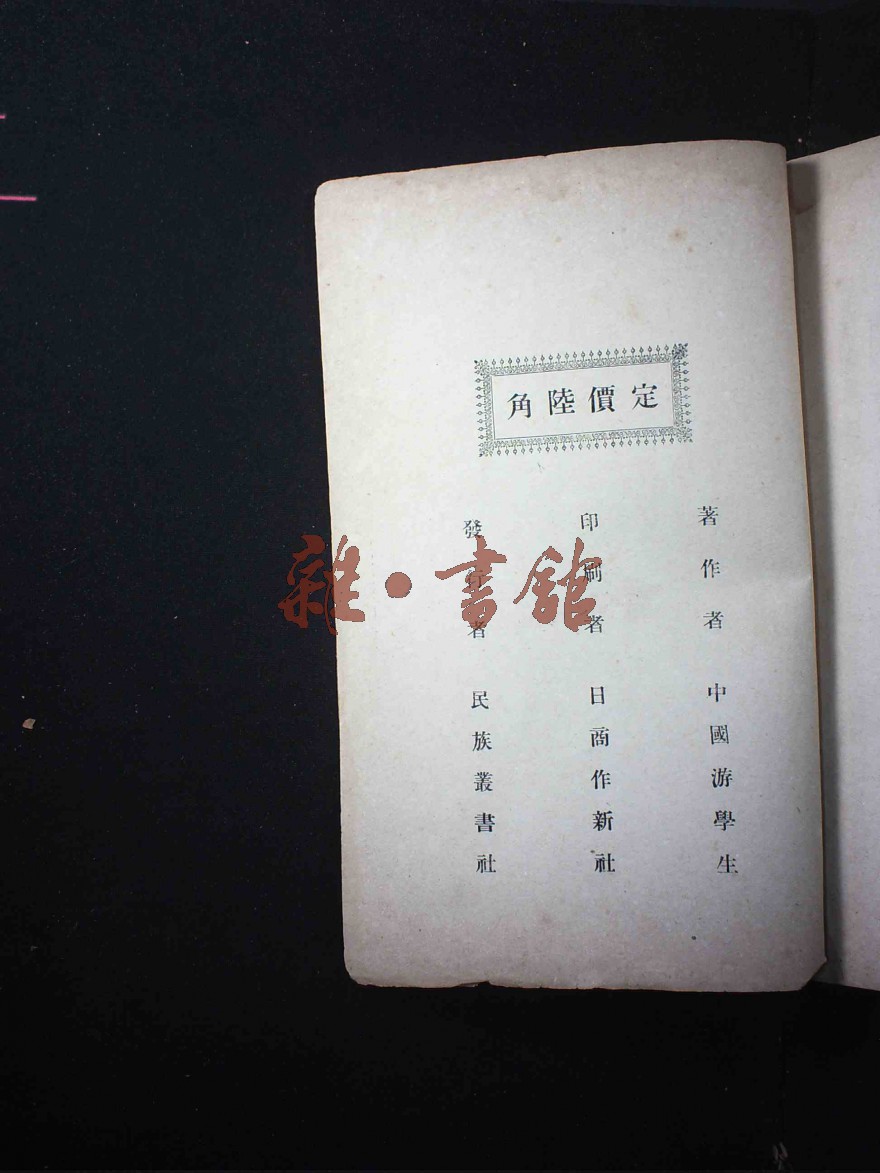 定價陸角
著作者 中國游學生
印刷者 日商作新社
發行者 民族叢書社
雜·書館